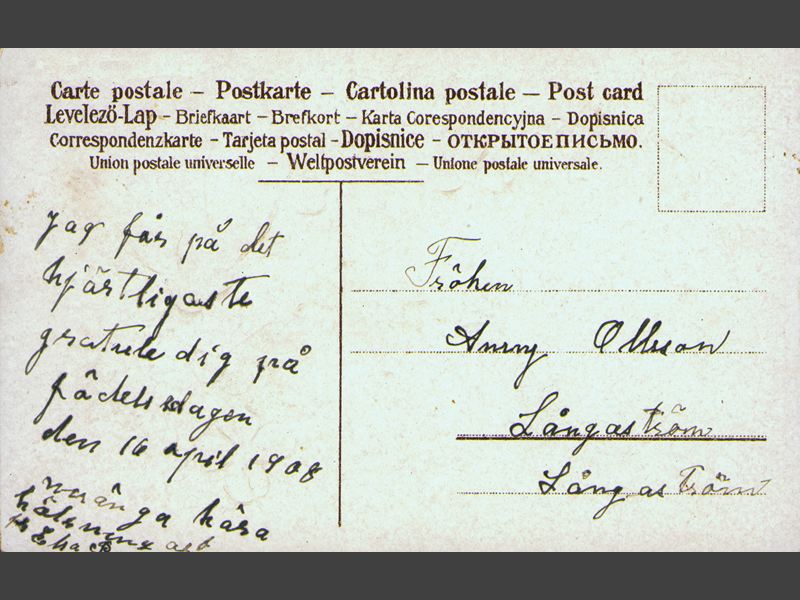 Carte postale – Postkarte – Cartolina postale – Post card
Levelezö-Lap – Briefkaart – Brefkort – Karta Corespondencyjna – Dopisnica
Correspondenzkarte – Tarjeta postal – Dopisnice – ОТКРЫТОЕ ПИСЬМО.
Union postale universelle – Weltpostverein – Unione postale universale.
Jag får på det
hjärtligaste
gratule dig på
födelsedagen
den 16 april 1908
många kära
hälsning
Fröken
Anny Ollsson
Långaström
Långaström